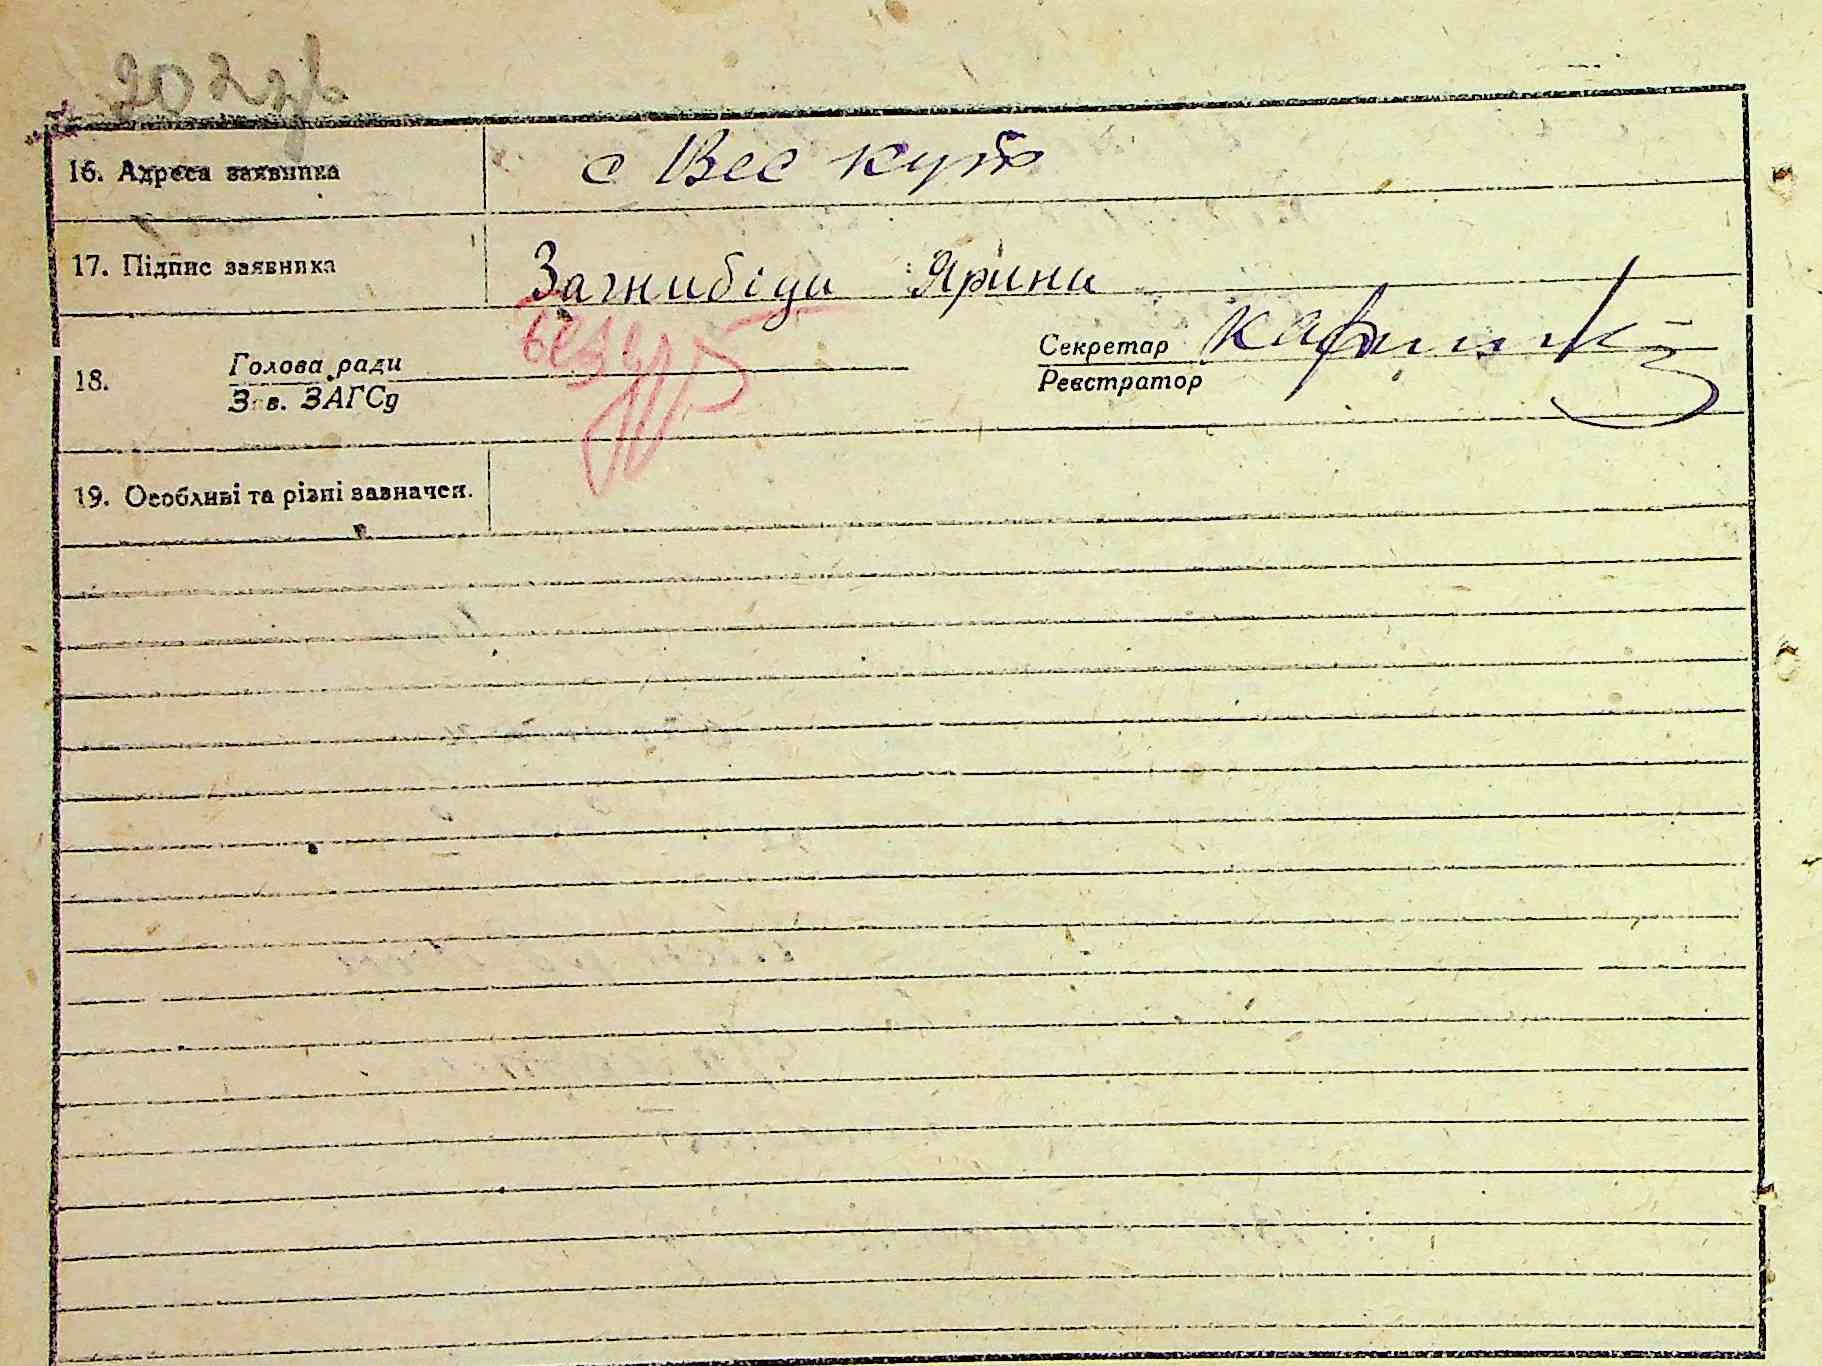 202 зв
16. Адреса заявника с Вес кут
17. Підпис заявника Загнибіди Ярини
18. Голова ради
Зав. ЗАГСу
Секретар
Реєстратор
19. Особливі та різні зазначен.